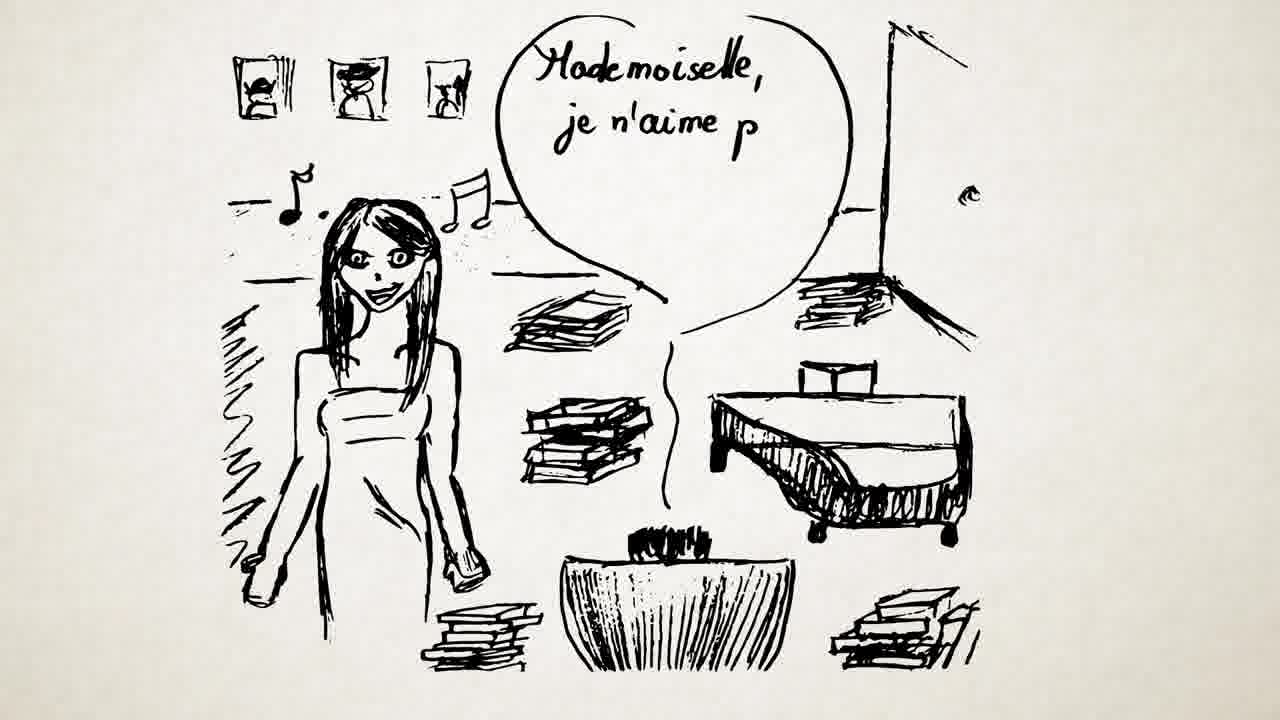 Mademoiselle,
je n'aime p